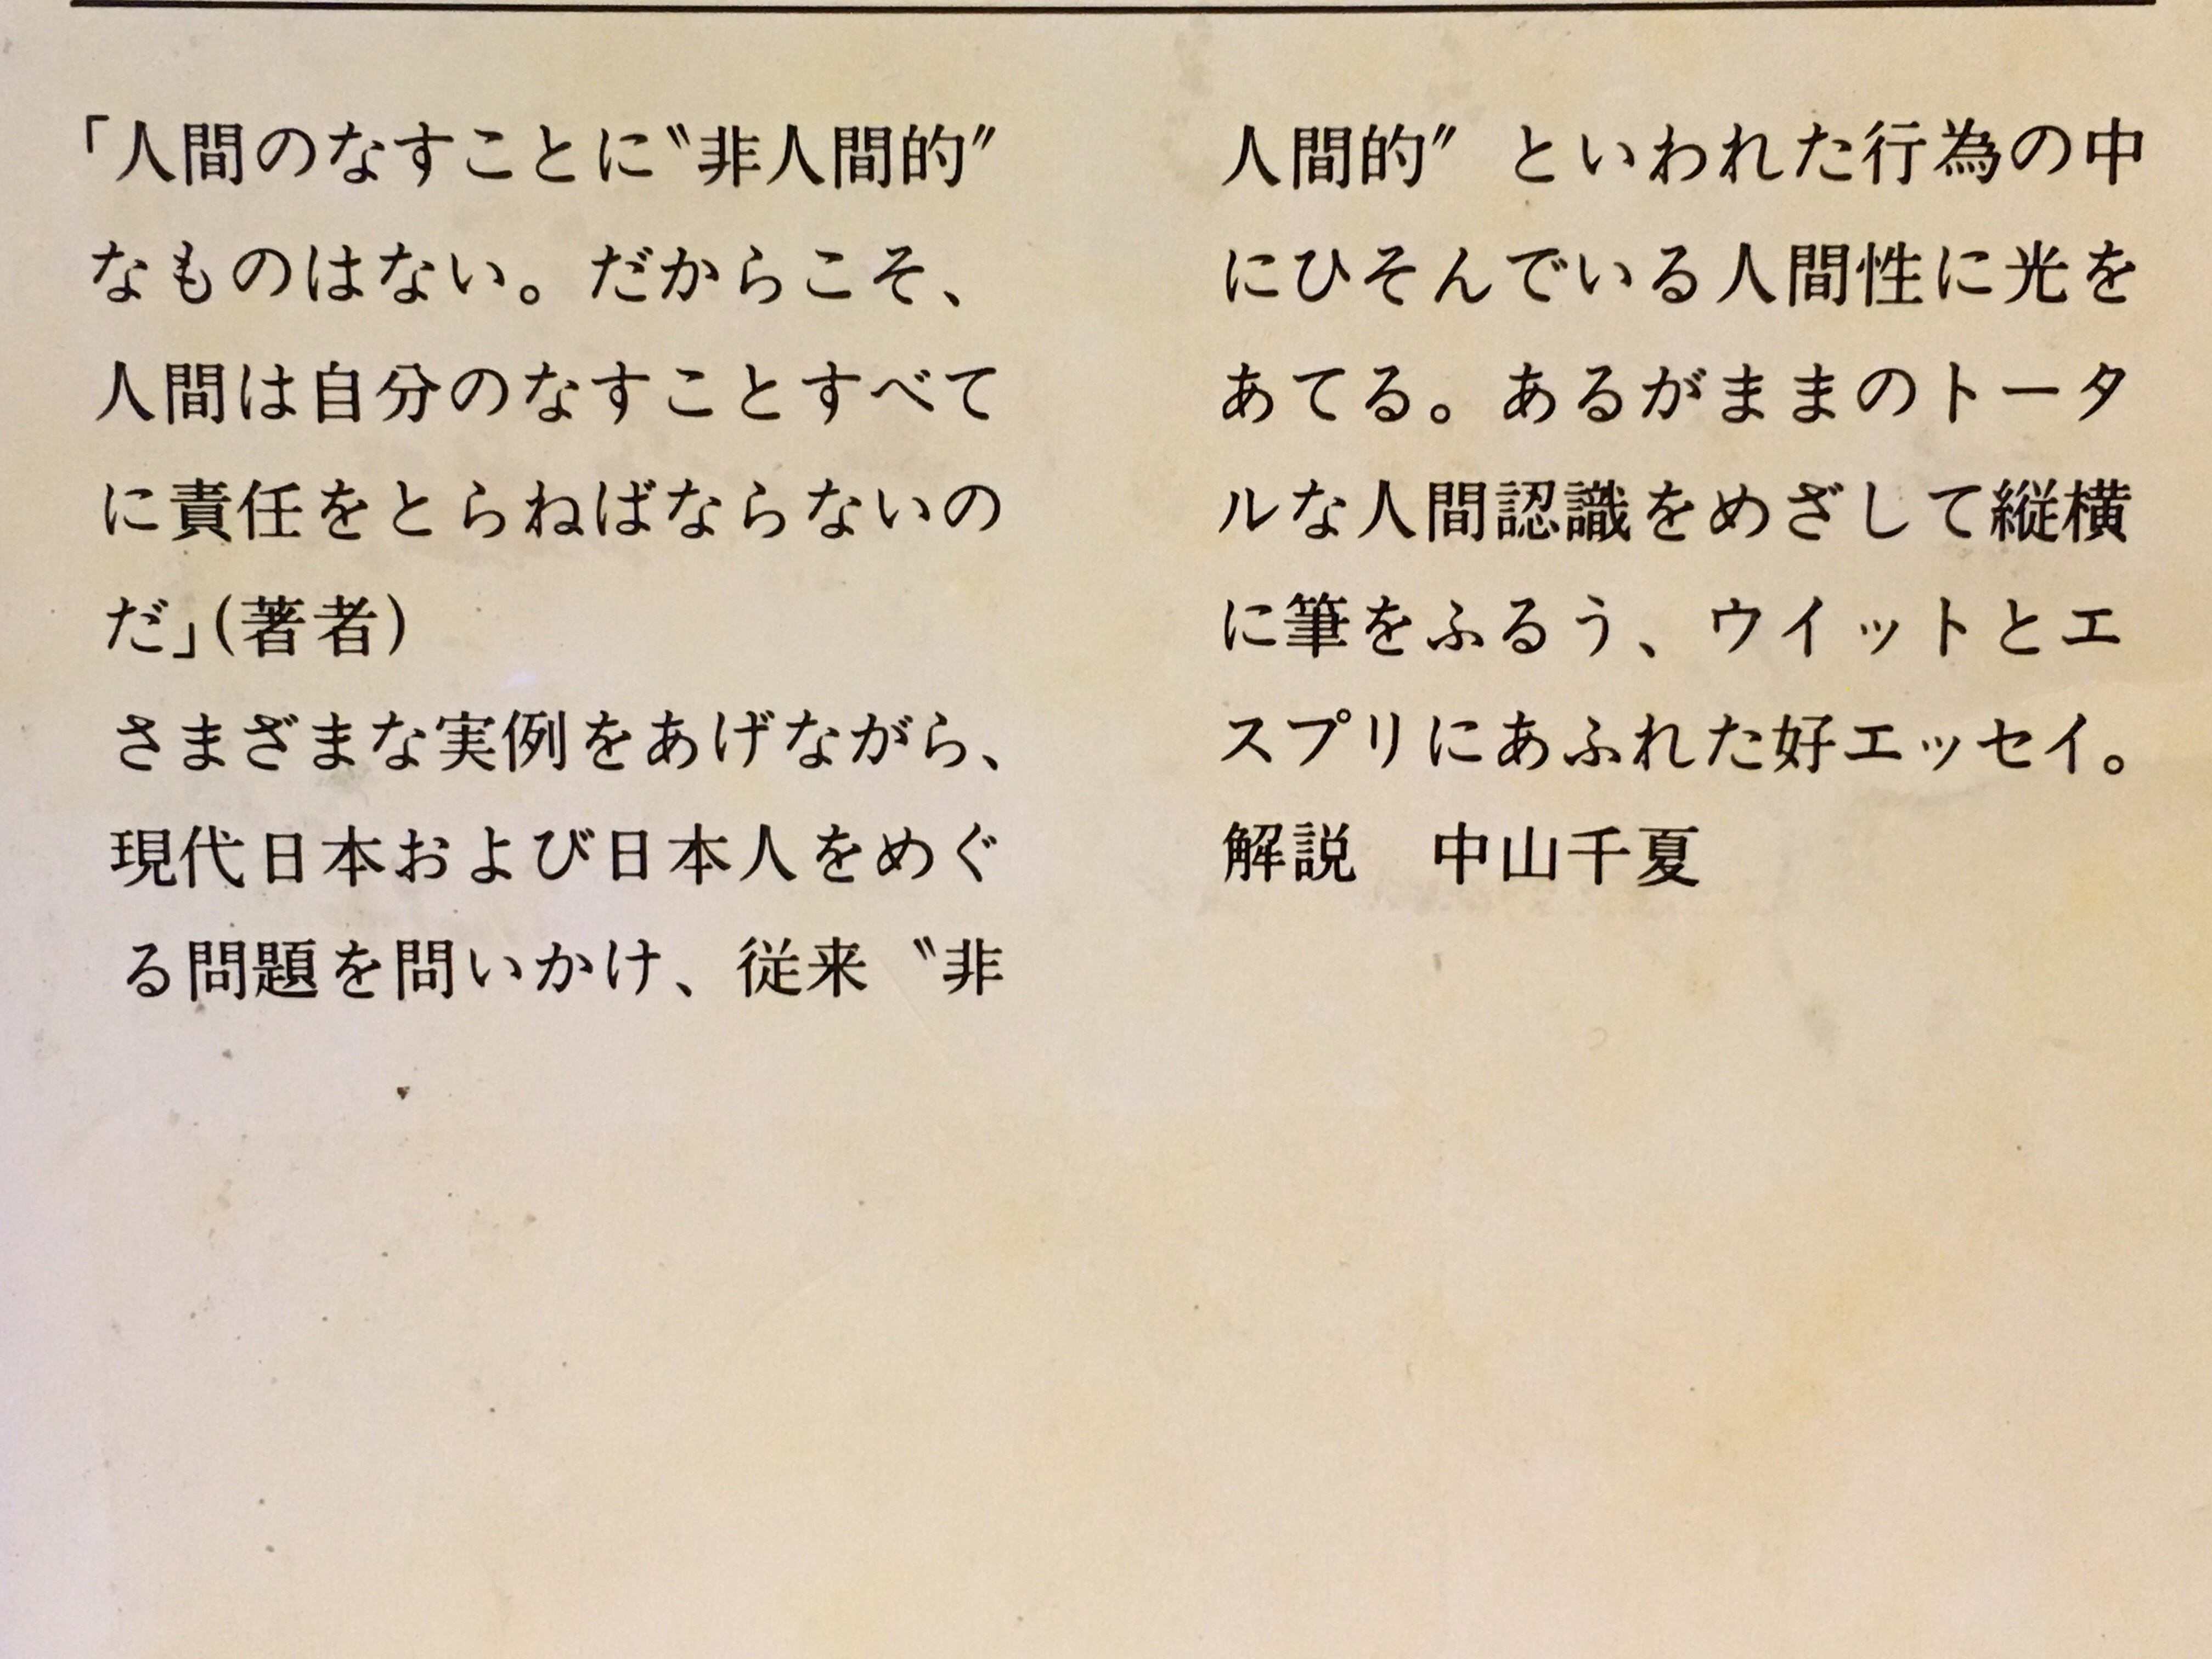 「人間のなすことに〝非人間的〞
なものはない。だからこそ、
人間は自分のなすことすべて
に責任をとらねばならないの
だ」(著者)
さまざまな実例をあげながら、
現代日本および日本人をめぐ
る問題を問いかけ、従来〝非
人間的〞といわれた行為の中
にひそんでいる人間性に光を
あてる。あるがままのトータ
ルな人間認識をめざして縦横
に筆をふるう、ウイットとエ
スプリにあふれた好エッセイ。
解説　中山千夏